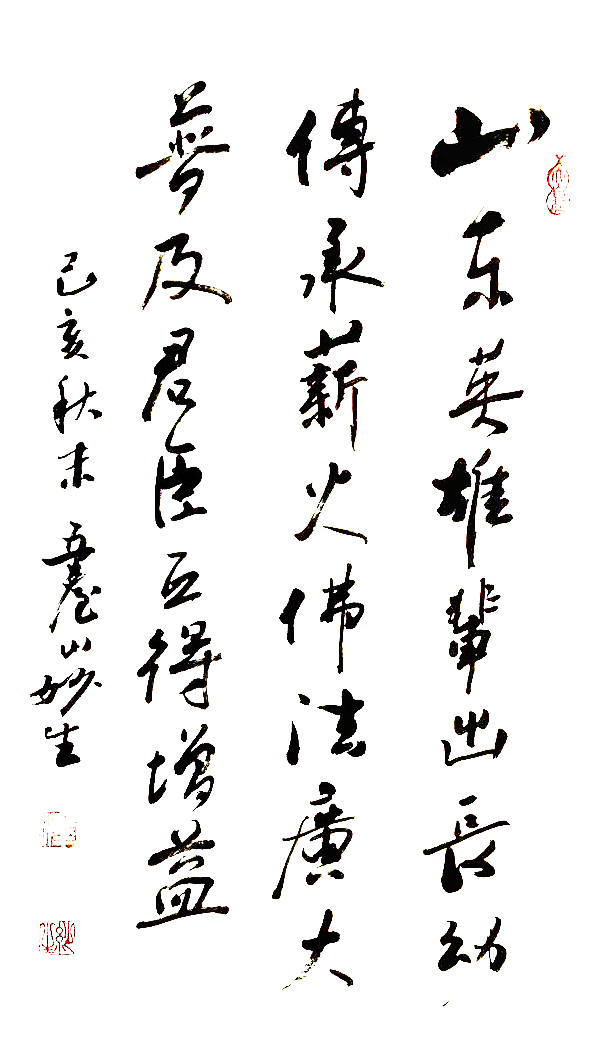 山东英雄輩出長幼
傳承薪火佛法廣大
普及君臣互得增益
己亥秋末 五臺山妙生